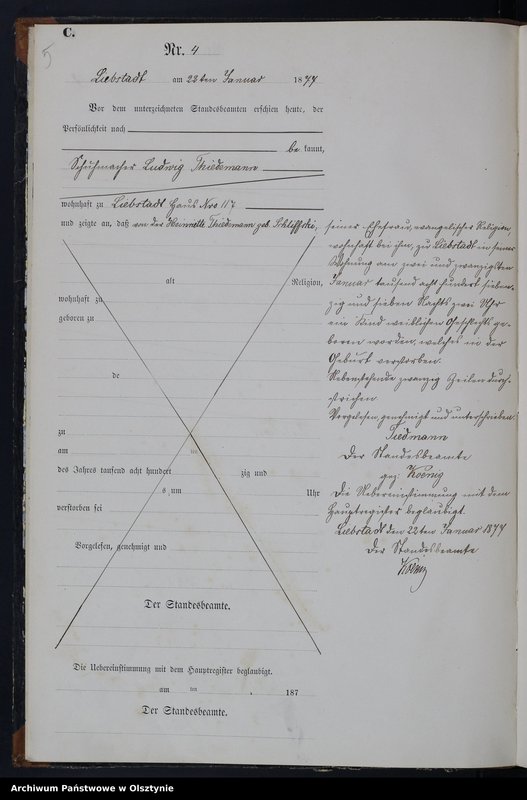 C.
5
Nr. 4
Liebstadt am 22ten Januar 1877
Vor dem unterzeichneten Standesbeamten erschien heute, der
Persönlichkeit nach
be kannt,
Schuhmacher Ludwig Thiedemann
wohnhaft zu Liebstadt Haus Nro. 117
und zeigte an, daß von der Henriette Thiedemann geb.
seiner Ehefrau, evangelischer Religion,
wohnhaft bei ihm, zu Liebstadt in seiner
Wohnung am zwei und zwanzigsten
Januar tausend acht hundert sieben-
zig und sieben Nachts zwei Uhr
ein Kind weiblichen Geschlechts ge-
boren worden, welches in der
Geburt verstorben.
Nebenstehende zwanzig Zeilen durch-
strichen.
Vorgelesen, genehmigt und unterschrieben
Tiedmann
Der Standesbeamte
gez. Koenig
Die Uebereinstimmung mit dem
Hauptregister beglaubigt.
Liebstadt den 22ten Januar 1877
Der Standesbeamte
Koenig
alt Religion,
wohnhaft zu
geboren zu
de
zu
am ten
des Jahres tausend acht hundert zig und
s um Uhr
verstorben sei
Vorgelesen, genehmigt und
Der Standesbeamte.
Die Uebereinstimmung mit dem Hauptregister beglaubigt.
am ten 187
Der Standesbeamte.
Archiwum Państwowe w Olsztynie